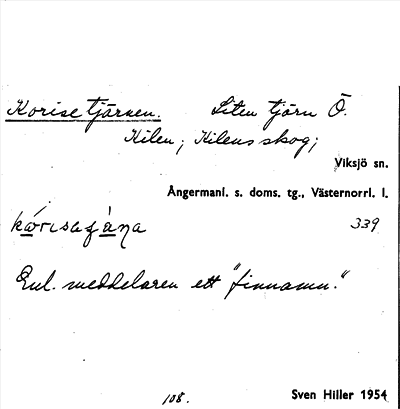 Korisetjärnen. Liten tjärn Ö.
Kilen; Kilens skog;
Viksjö sn.
Ångermanl. s. doms. tg., Västernorrl. l.
339
Enl. meddelaren ett "finnamn."
108.
Sven Hiller 1954